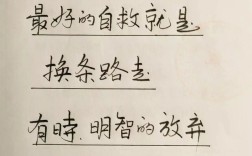 最好的自救就是
换条路走
有時.明智的放弃